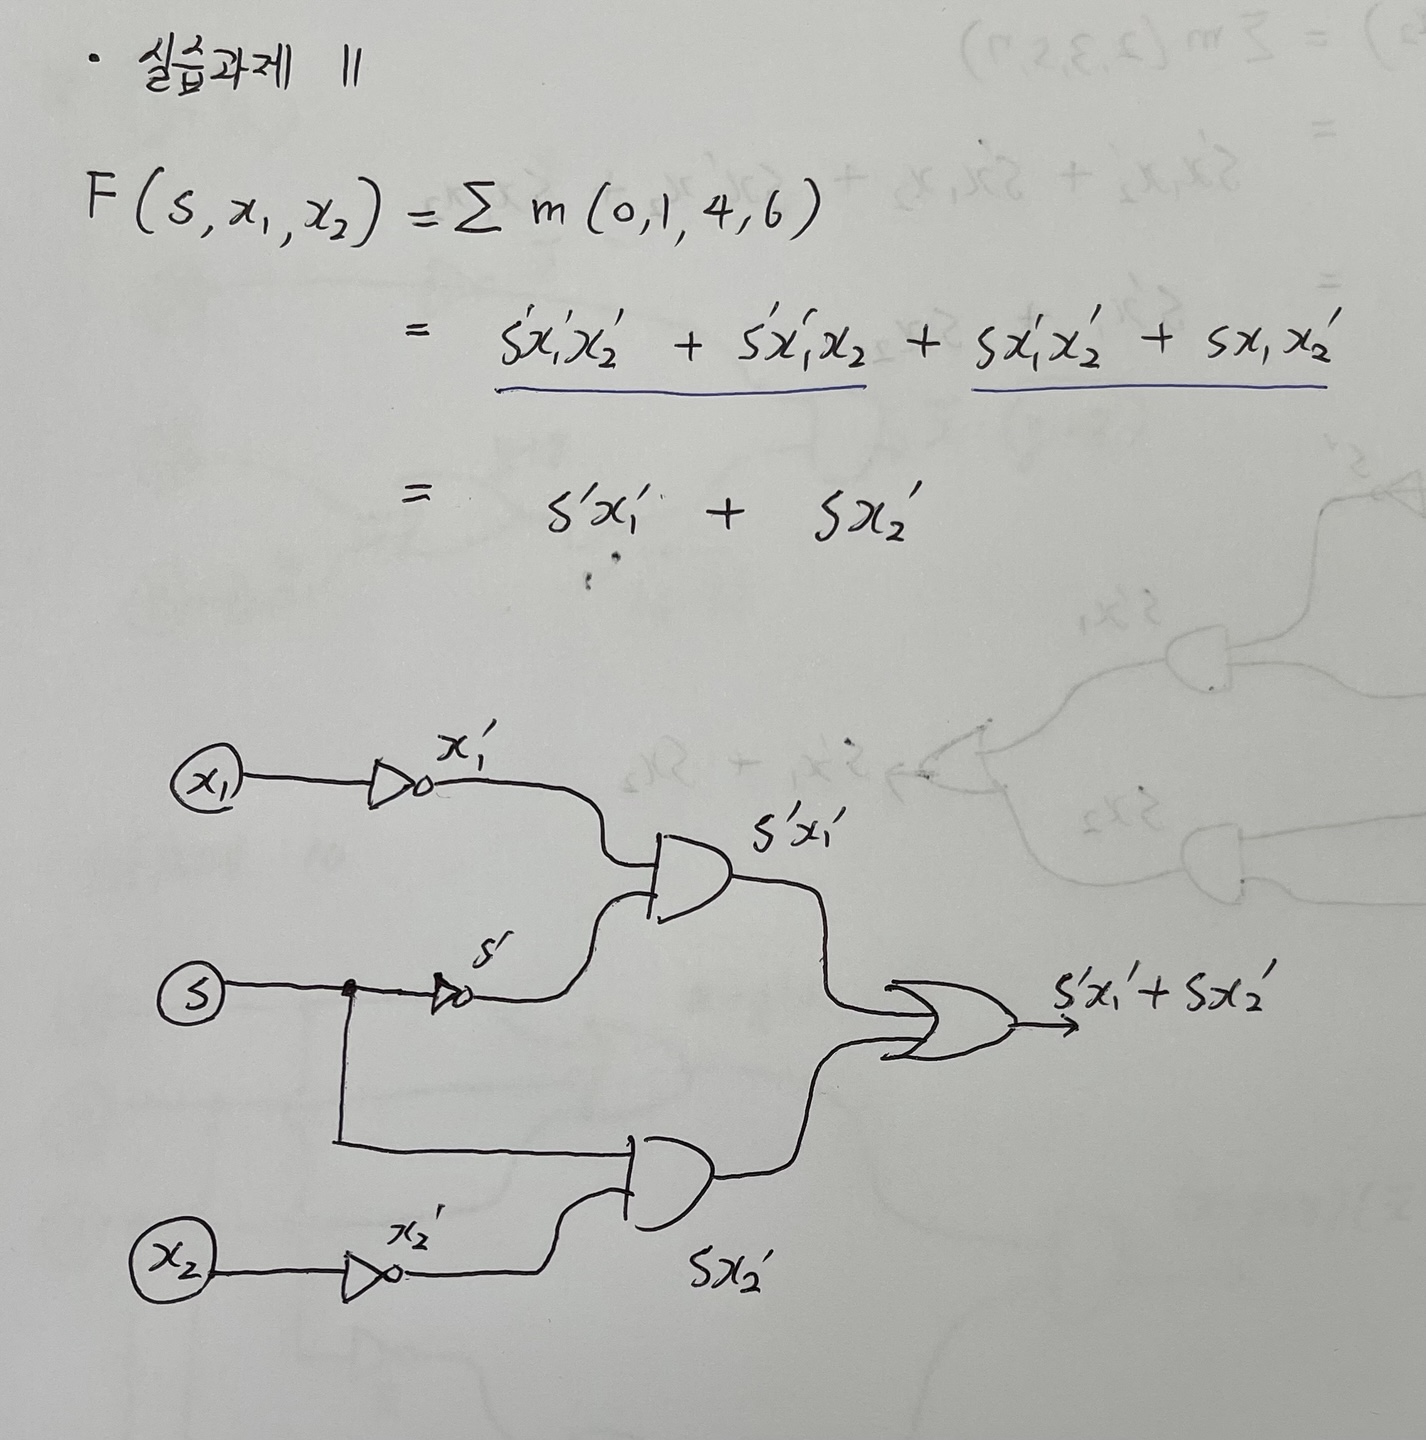 · 실습과제 11
F(s, x₁, x₂) = Σ m (0, 1, 4, 6)
= s'x₁'x₂' + s'x₁'x₂ + sx₁'x₂' + sx₁x₂'
= s'x₁' + sx₂'
x₁ x₁'
s'x₁'
s s'
s'x₁' + sx₂'
x₂ x₂'
sx₂'